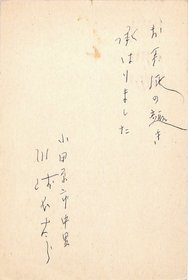 お手紙の趣き
承はりました
小田原市中里
川崎長太郎